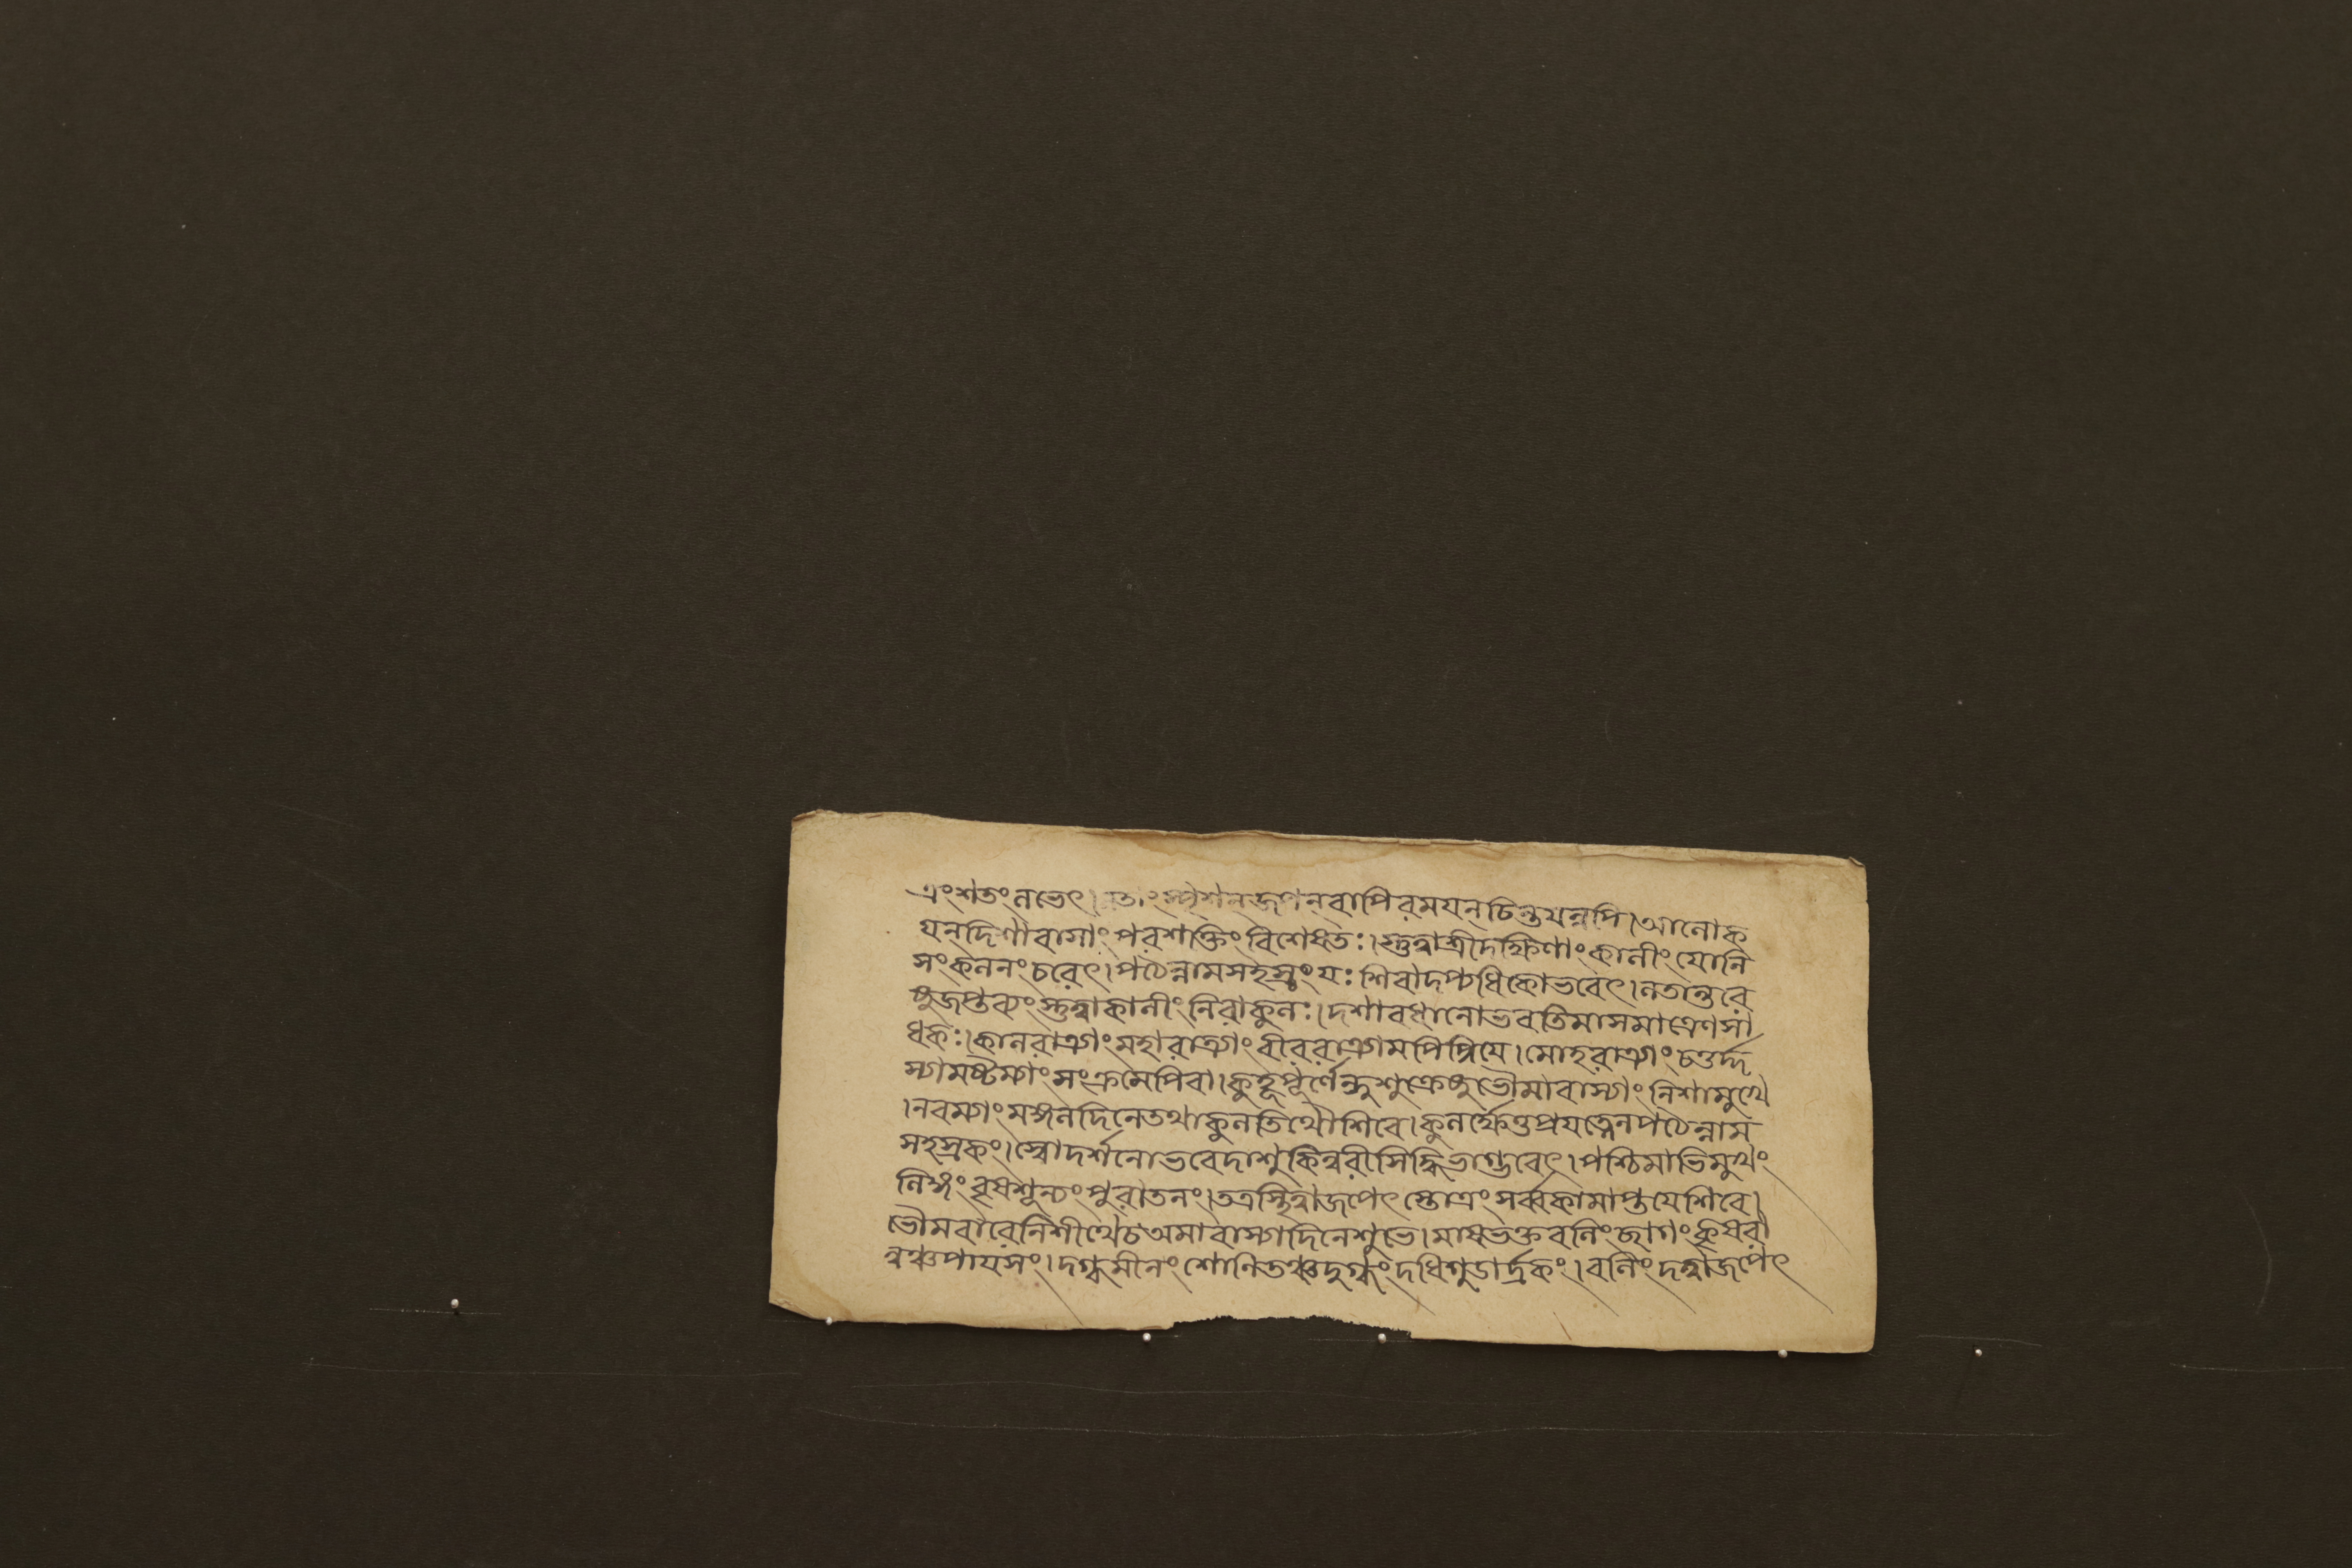 ত্রংশতংলভেৎ।লতাংস্পৃশন্জপন্বাপিরময়ন্চিন্তয়ন্নপি।আলোক
য়ন্দিগ্বাসাংপরশক্তিংবিশেষতঃ।স্তুত্বাশ্রীদক্ষিণাংকালীংযোনি
সংকলনংচরেৎ।পঠেন্নামসহস্রংযঃশিবাদপ্যধিকোভবেৎ।লতান্তরে
ষুজপ্তব্যংস্তুত্বাকালীংনিরাকুলঃ।দশাবধানোভবতিমাসমাত্রেণসা
ধকঃ।কালরাত্র্যাংমহারাত্র্যাংবীররাত্র্যামপিপ্রিয়ে।মোহরাত্র্যাংচতুর্দ্দ
স্যামষ্টম্যাংসংক্রমেপিবা।কুহূপূর্ণেন্দুশুক্রেষুভৌমাবাস্যাংনিশামুখে
।নবম্যাংমঙ্গলদিনেতথাকুলতিথৌশিবে।কুলর্ক্ষেতুপ্রযত্নেনপঠেন্নাম
সহস্রকং।স্বোদর্শনোভবেদাশুকিন্নরীসিদ্ধিভাগ্ভবেৎ।পশ্চিমাভিমুখং
লিঙ্গংবৃষশূন্যংপুরাতনং।তত্রস্থিত্বাজপেৎস্তোত্রংসর্ব্বকামাপ্তয়েশিবে।
ভৌমবারেনিশীথেচঅমাবাস্যাদিনেশুভে।মাষভক্তবলিংছাগংকৃষরা
ন্নঞ্চপায়সং।দগ্ধমীনংশোনিতঞ্চদুগ্ধংদধিগুডার্দ্রকং।বলিংদত্বাজপেৎ